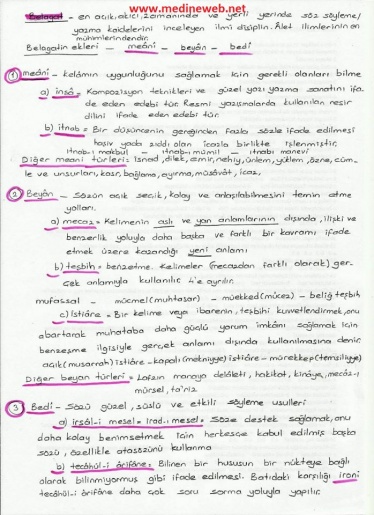 www.medineweb.net
Belagat - en açık, akıcı, zamanında ve yerli yerinde söz söyleme/
yazma kaidelerini inceleyen ilmi disiplin. Âlet ilimlerinin en
mühimlerindendir.
Belagatin ekleri - meâni - beyân - bedî
1 meâni - kelâmın uygunluğunu sağlamak için gerekli olanları bilme
a) inşâ = Kompozisyon teknikleri ve güzel yazı yazma sanatını ifa-
de eden edebi tür. Resmi yazışmalarda kullanılan nesir
dilini ifade eden edebi tür.
b) itnab = Bir düşüncenin gereğinden fazla sözle ifade edilmesi
haşiv yada zıddı olan îcazla birlikte işlenmiştir.
itnab-ı makbul - itnab-ı mümil - itnabı manevi
Diğer meani türleri: İsnad, dilek, emir, nehiy, ünlem, yüklem, özne, cüm-
le ve unsurları, kasr, bağlama, ayırma, müsâvât, îcaz,
2 Beyân - Sözün açık seçik, kolay ve anlaşılabilmesini temin etme
yolları.
a) mecaz = Kelimenin aslı ve yan anlamlarının dışında, ilişki ve
benzerlik yoluyla daha başka ve farklı bir kavramı ifade
etmek üzere kazandığı yeni anlamı
b) teşbih = benzetme. Kelimeler (mecazdan farklı olarak) ger-
çek anlamıyla kullanılır. 4'e ayrılır.
mufassal - mücmel (muhtasar) - müekked (mûcez) - beliğ teşbih
c) İstiâre = Bir kelime veya ibarenin, teşbihi kuvvetlendirmek, onu
abartarak muhataba daha güçlü yorum imkânı sağlamak için
benzeşme ilgisiyle gerçek anlamı dışında kullanılmasına denir.
açık (musarrah) istiâre - kapalı (mekniyye) istiâre - mürekkep (temsiliyye)
Diğer beyan türleri = Lafzın manaya delâleti, hakikat, kinâye, mecâz-ı
mürsel, ta'riz
3 Bedî - Sözü güzel, süslü ve etkili söyleme usulleri
a) irsâl-i mesel = irad-ı mesel = Söze destek sağlamak, onu
daha kolay benimsetmek için herkesçe kabul edilmiş başka
sözü, özellikle atasözünü kullanma
b) tecâhül-i ârifâne: Bilinen bir hususun bir nükteye bağlı
olarak bilinmiyormuş gibi ifade edilmesi. Batıdaki karşılığı ironi
tecâhül-i ârifâne daha çok soru sorma yoluyla yapılır.